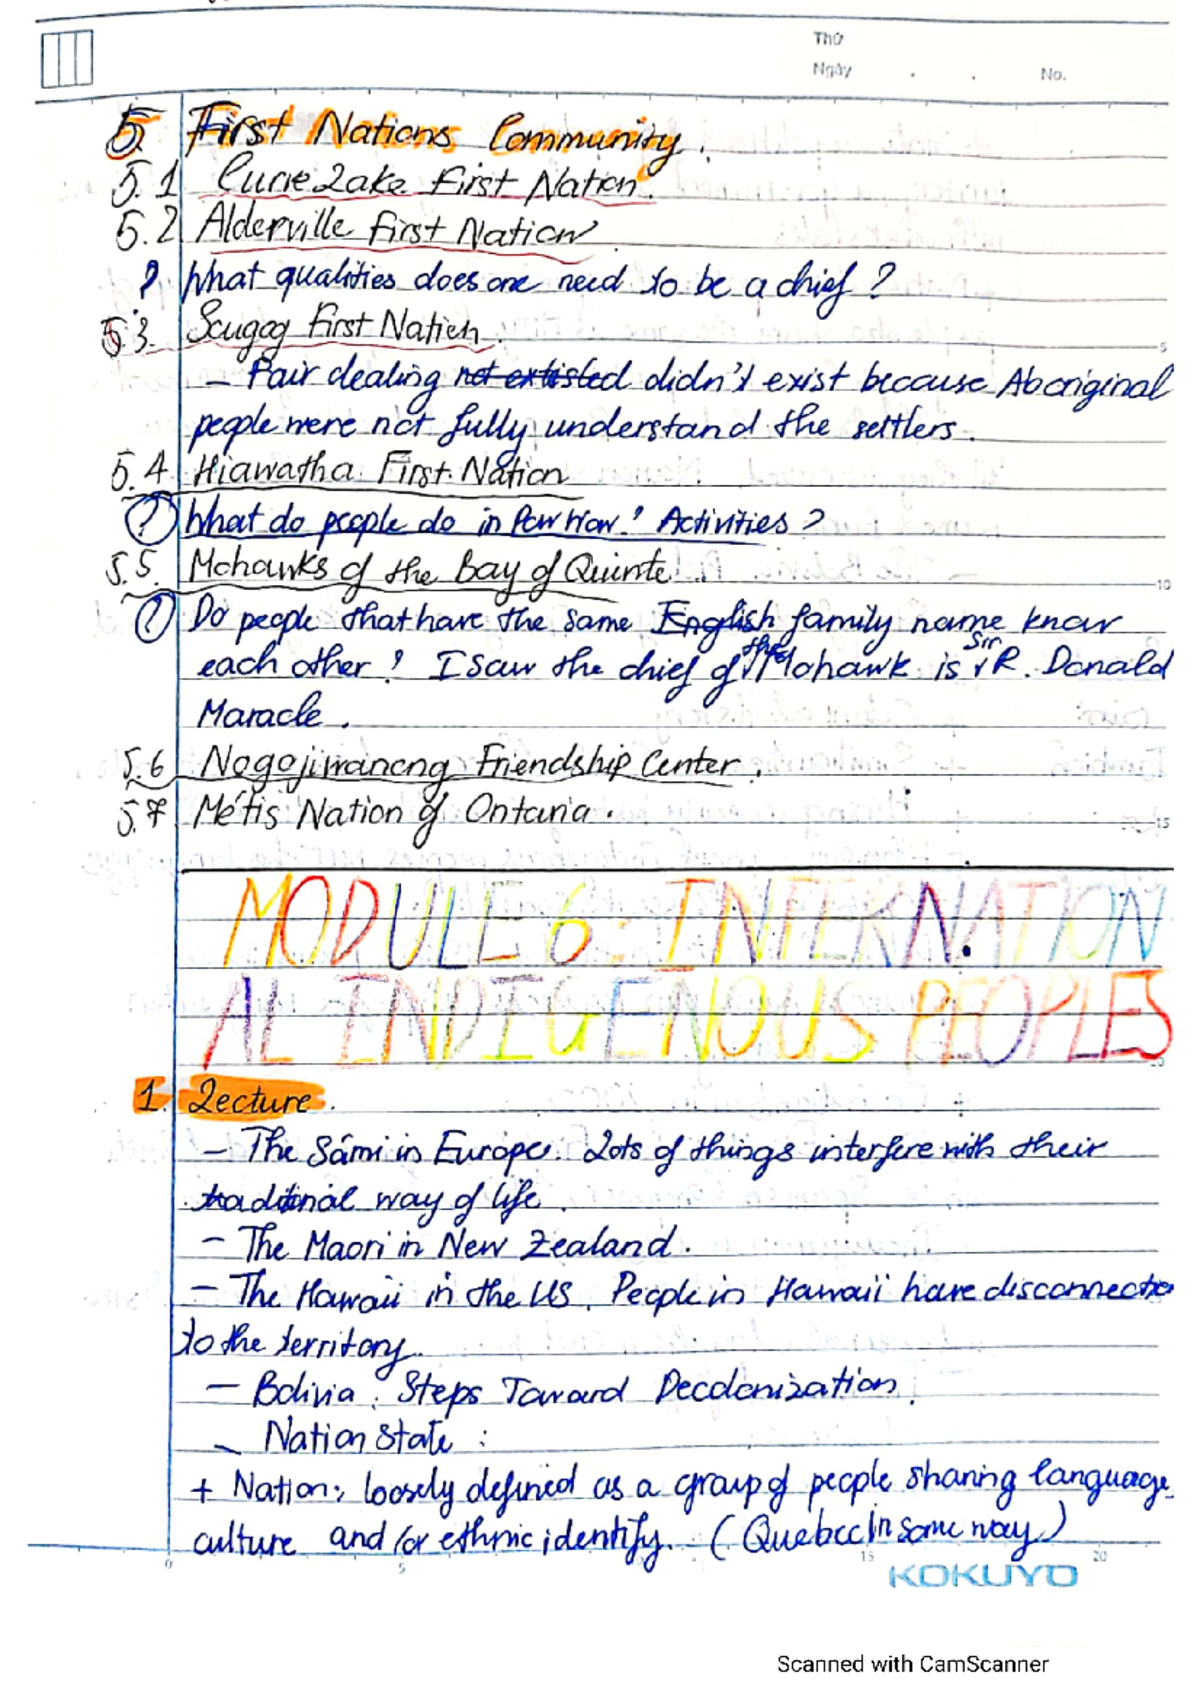 Thứ
Ngày . . No.
5 First Nations Community.
5.1 Curve Lake First Nation.
5.2 Alderville First Nation.
? What qualities does one need to be a chief ?
5.3. Scugog First Nation.
- Fair dealing not extisted didn't exist because Aboriginal
people were not fully understand the settlers.
5.4 Hiawatha First Nation
? What do people do in PowWow? Activities ?
5.5. Mohawks of the Bay of Quinte.
? Do people that have the same English family name know
each other ? I saw the chief of the Mohawk is Sir R. Donald
Maracle.
5.6 Nogojiwanong Friendship Center.
5.7 Métis Nation of Ontario.
MODULE 6: INTERNATION
AL INDIGENOUS PEOPLES
1. Lecture.
- The Sámi in Europe. Lots of things interfere with their
traditinal way of life.
- The Maori in New Zealand.
- The Hawaii in the US. People in Hawaii have disconnectio
to the territory.
- Bolivia: Steps Toward Decolonization.
- Nation State:
+ Nation: loosely defined as a group of people sharing language,
culture and/or ethnic identify. (Quebec in some way)
0 5 15 20
KOKUYO
Scanned with CamScanner